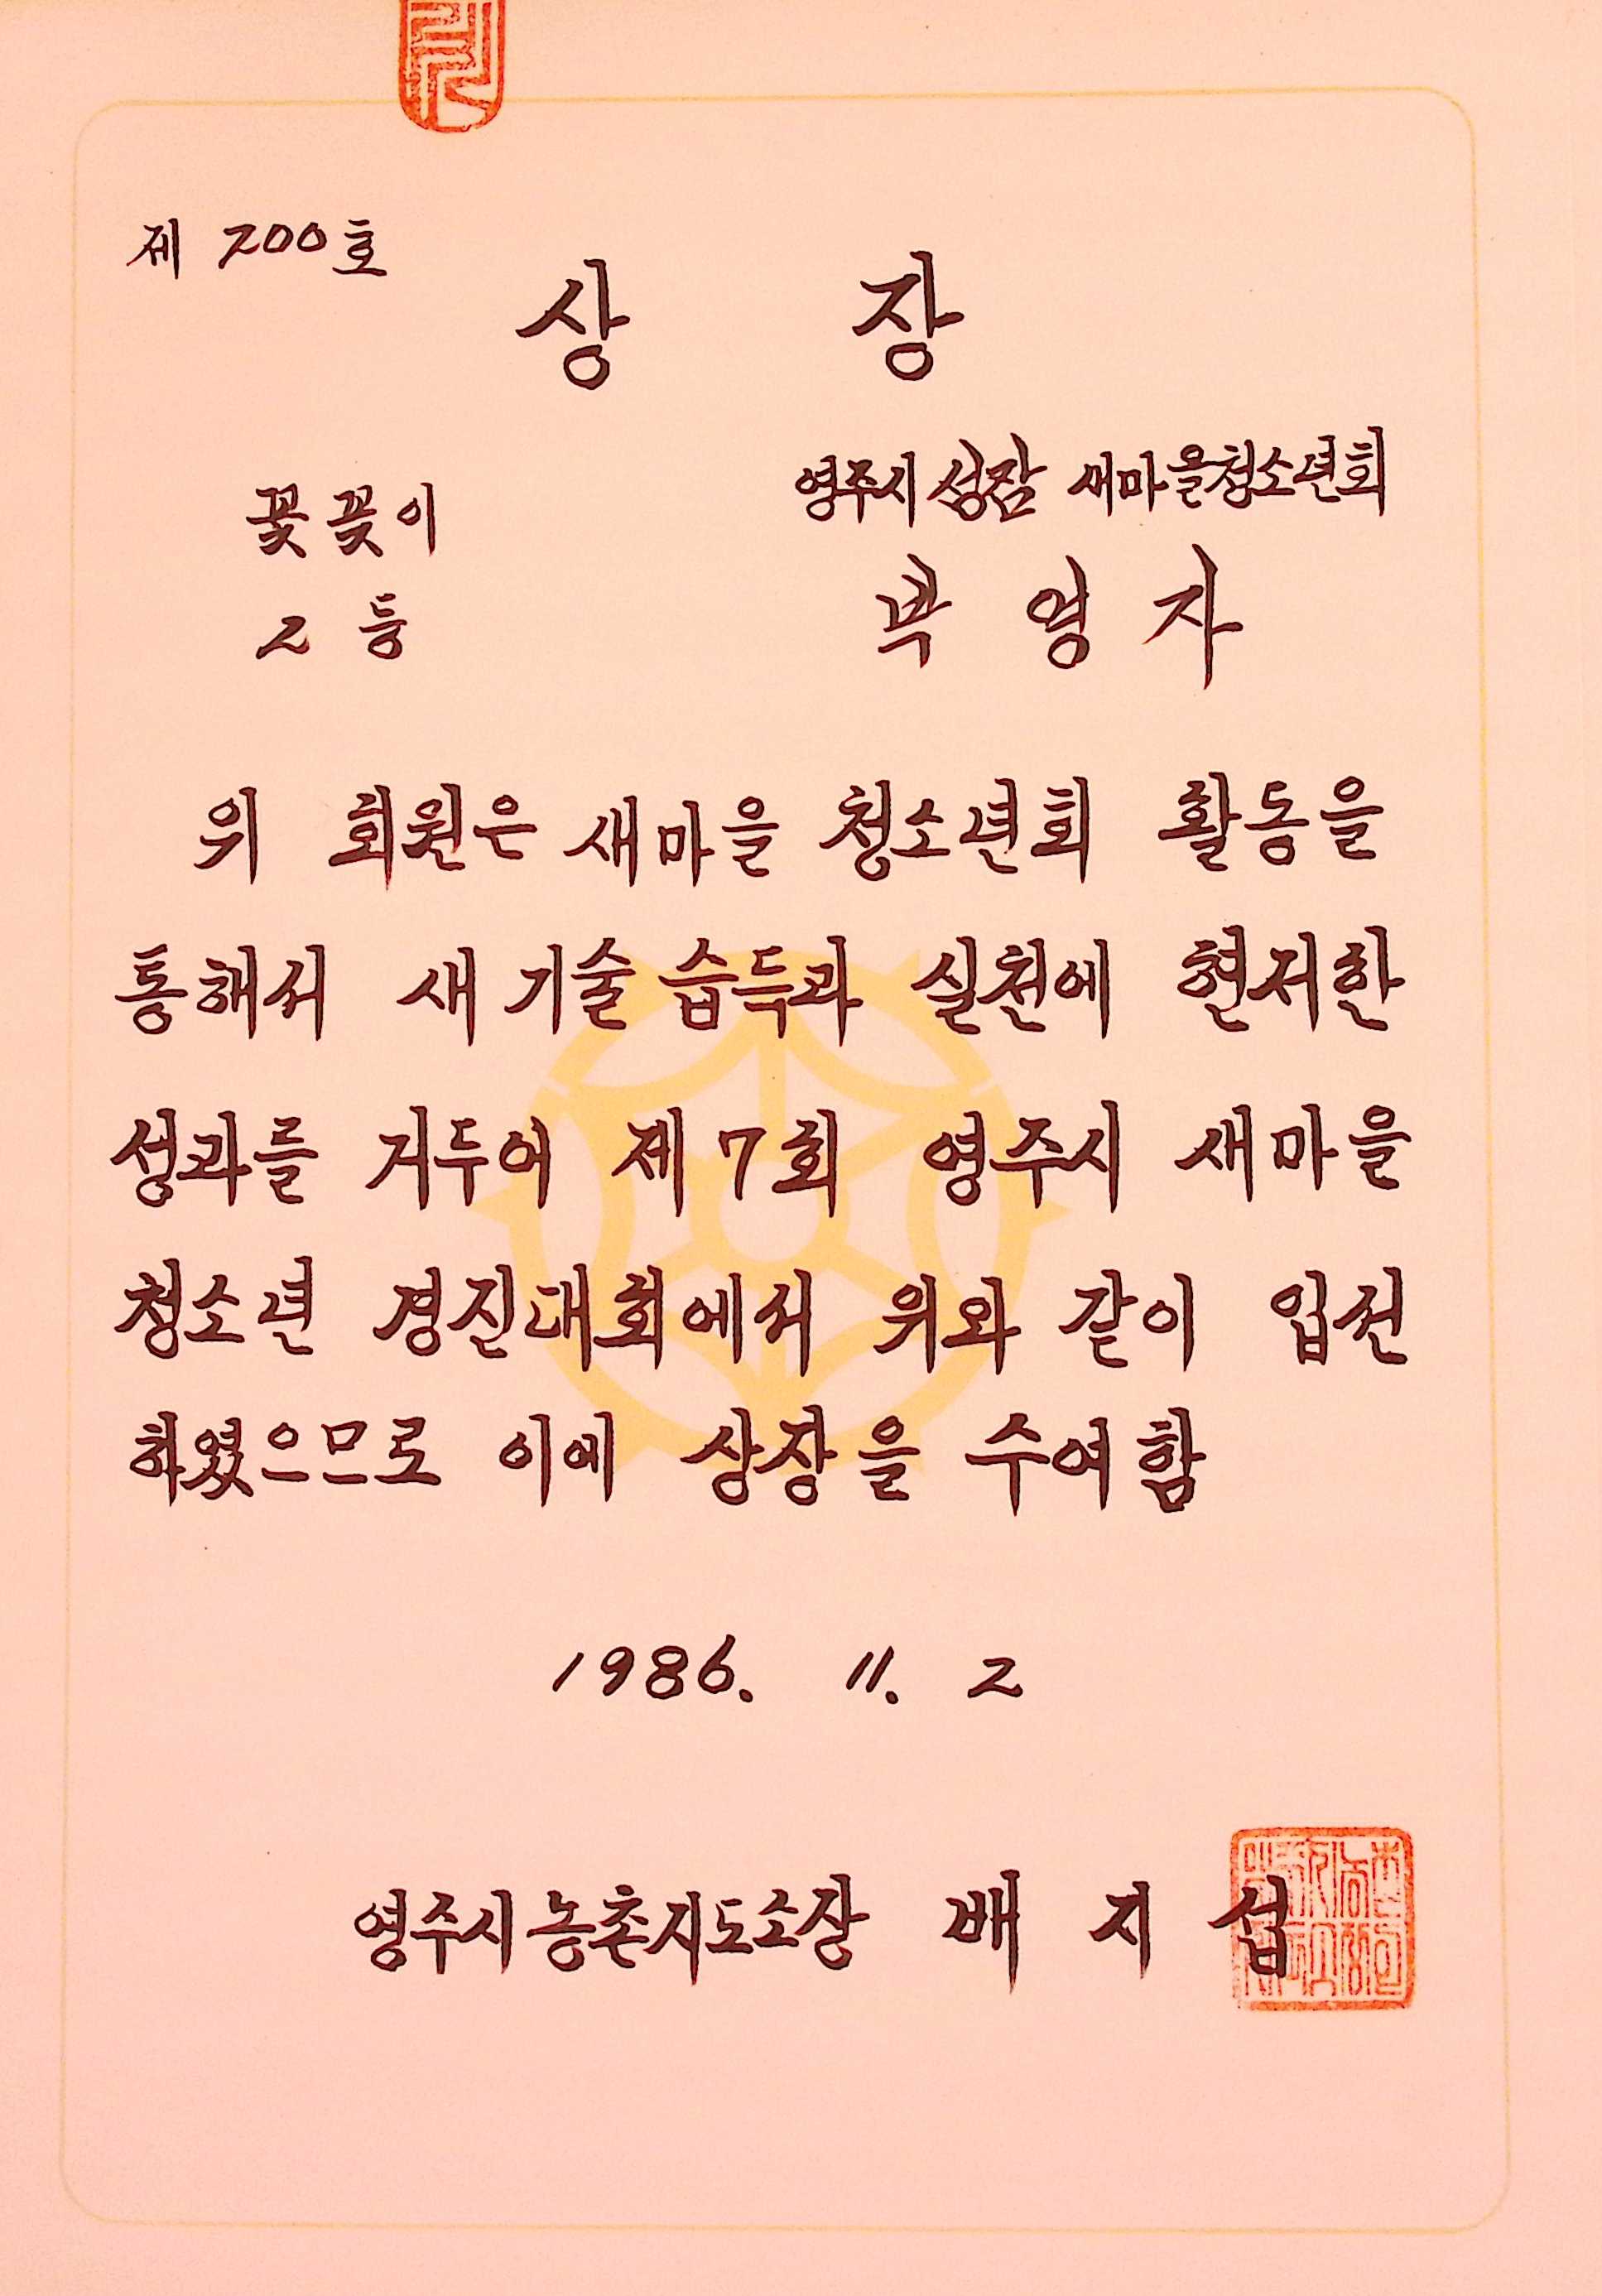 제 200호
상 장
꽃꽂이
영주시 성잠 새마을청소년회
2 등
박 영 자
위 회원은 새마을 청소년회 활동을
통해서 새 기술 습득과 실천에 현저한
성과를 거두어 제7회 영주시 새마을
청소년 경진대회에서 위와 같이 입선
하였으므로 이에 상장을 수여함
1986. 11. 2
영주시농촌지도소장 배 지 섭